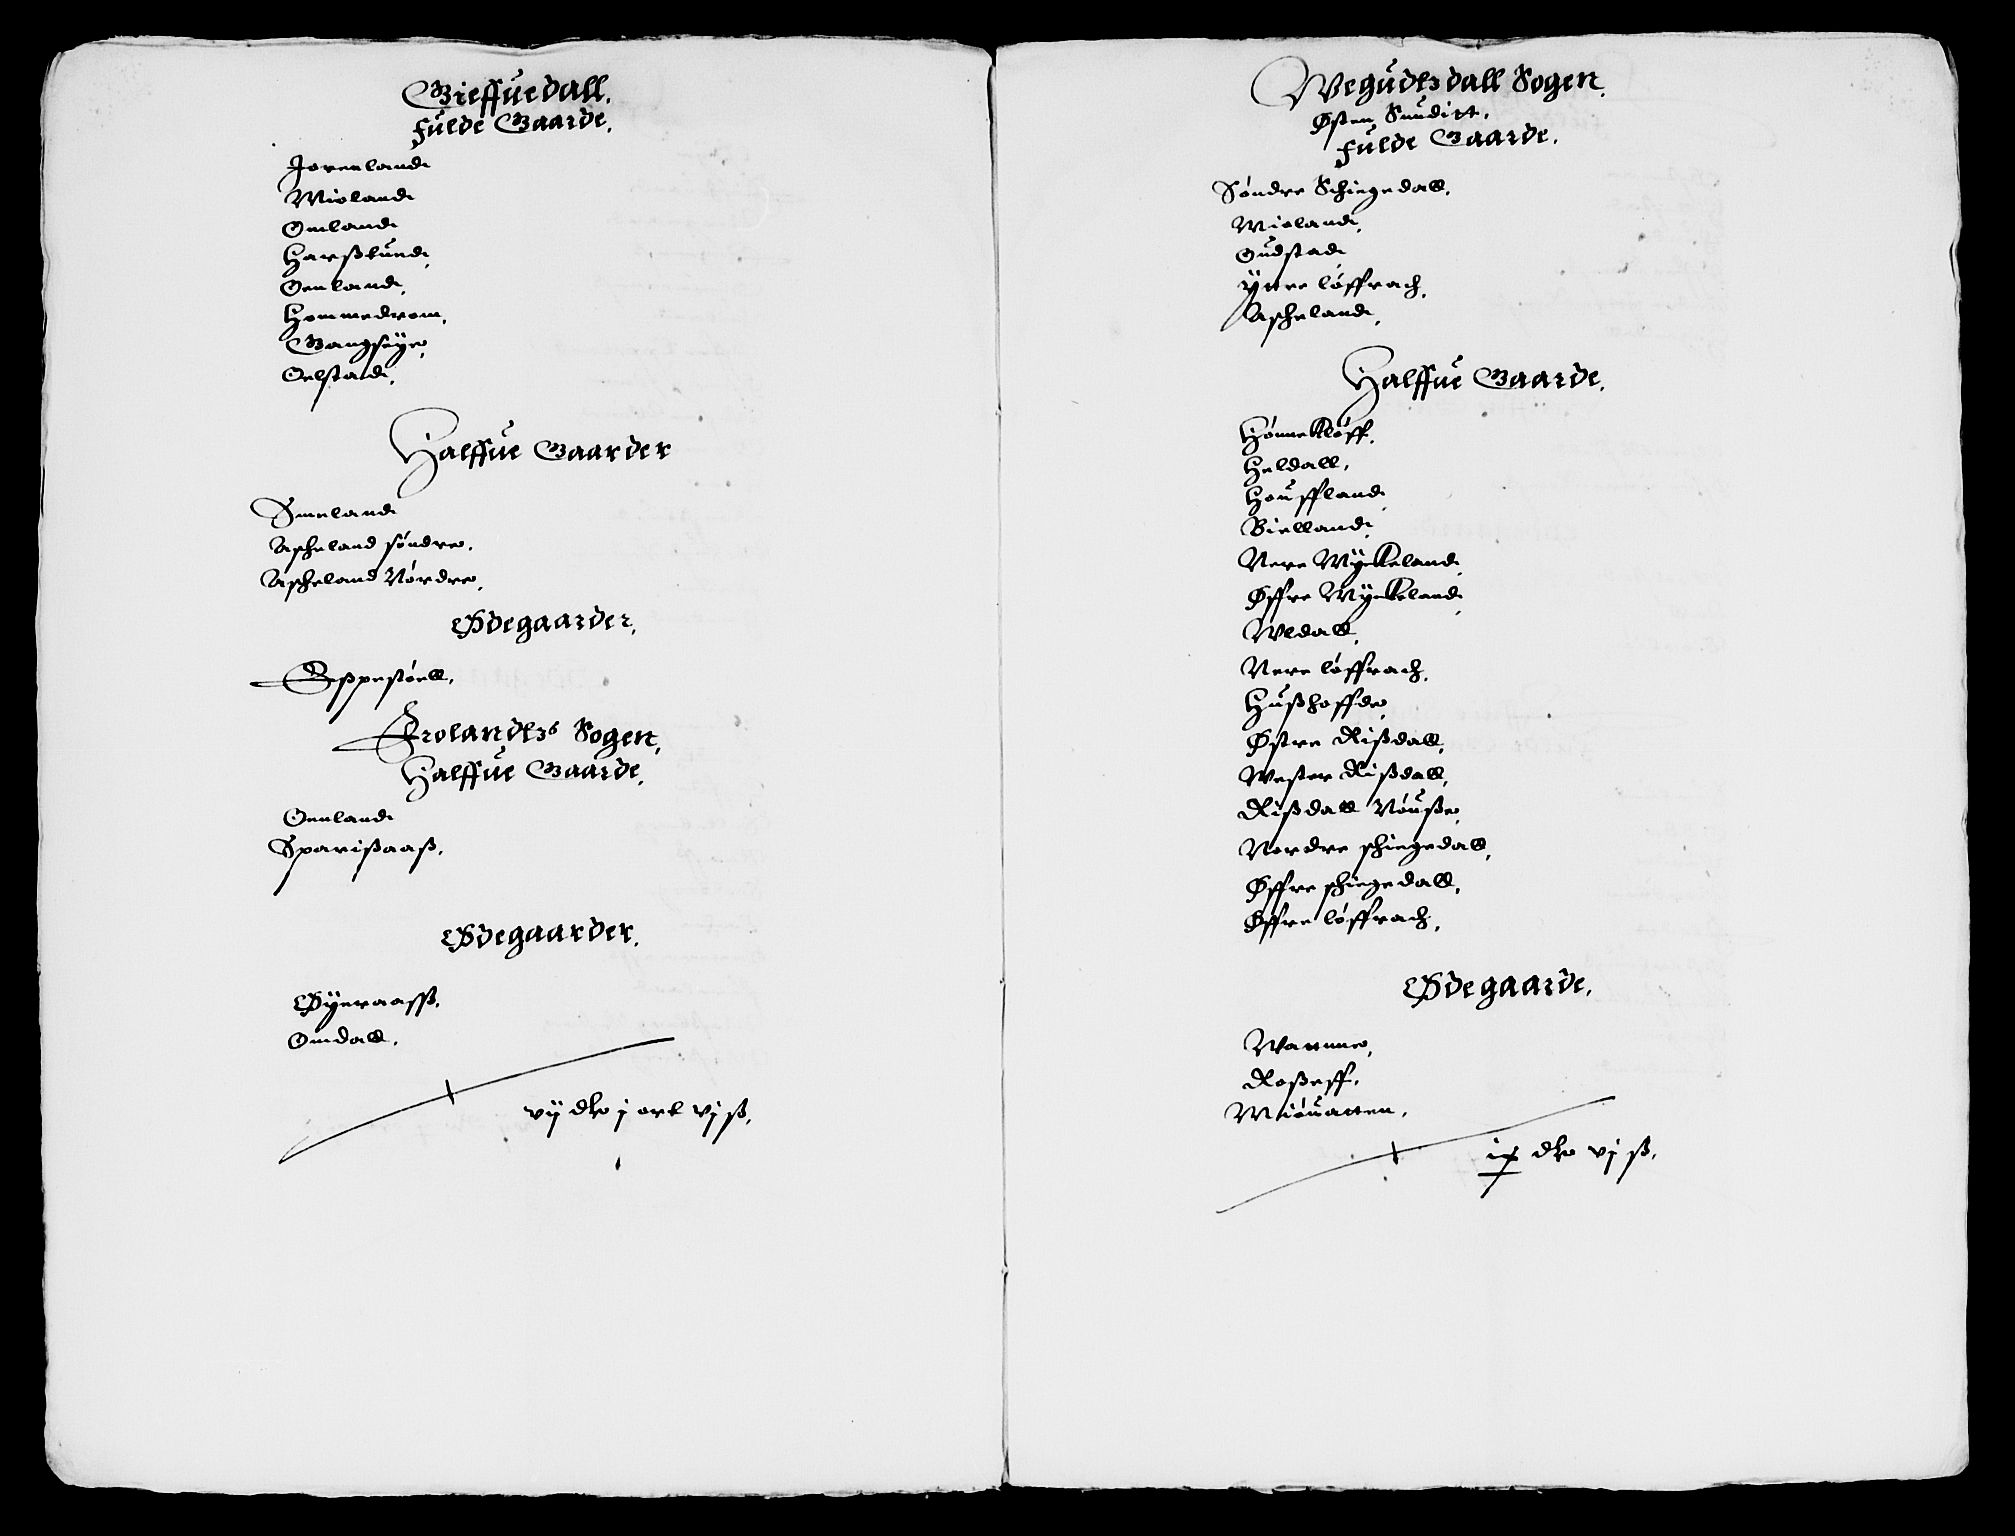 Gieffuedall.
fulde Gaarde.
Jorenland
Mioland
Omland
Harßlund,
Oenland,
Hommedrom,
Gangsøye,
Oelstad,
Halffue Gaarder
Smeland
Ascheland søndre,
Ascheland Nordre,
Ødegaarder,
Eßpestøell,
Frolandtzs Sogen,
Halffue Gaarde,
Oenland
Sparißaaß,
Ødegaarder,
Øyeraass,
Omdall,
vij dlr j ort vj ß,
Wegudtzdall Sogen,
Østen Sunditt,
fulde Gaarde.
Søndre Schiegedall,
Mioland,
Oudstad,
Yttre løffrach,
Ascheland,
Halffue Gaarde,
Hønnekløff,
Heldall,
Houffland,
Bielland,
Nere Myckeland,
Øffre Myckeland,
Wldall,
Nere løffrach,
Hußhoffde,
Østre Rißdall,
Wester Rißdall,
Rißdall Nouße,
Nordre schiegedall,
Øffre schiegedall,
Øffre løffrach,
Ødegaarde,
Wanne,
Roßeff,
Miøuatten,
ix dlr vj ß,